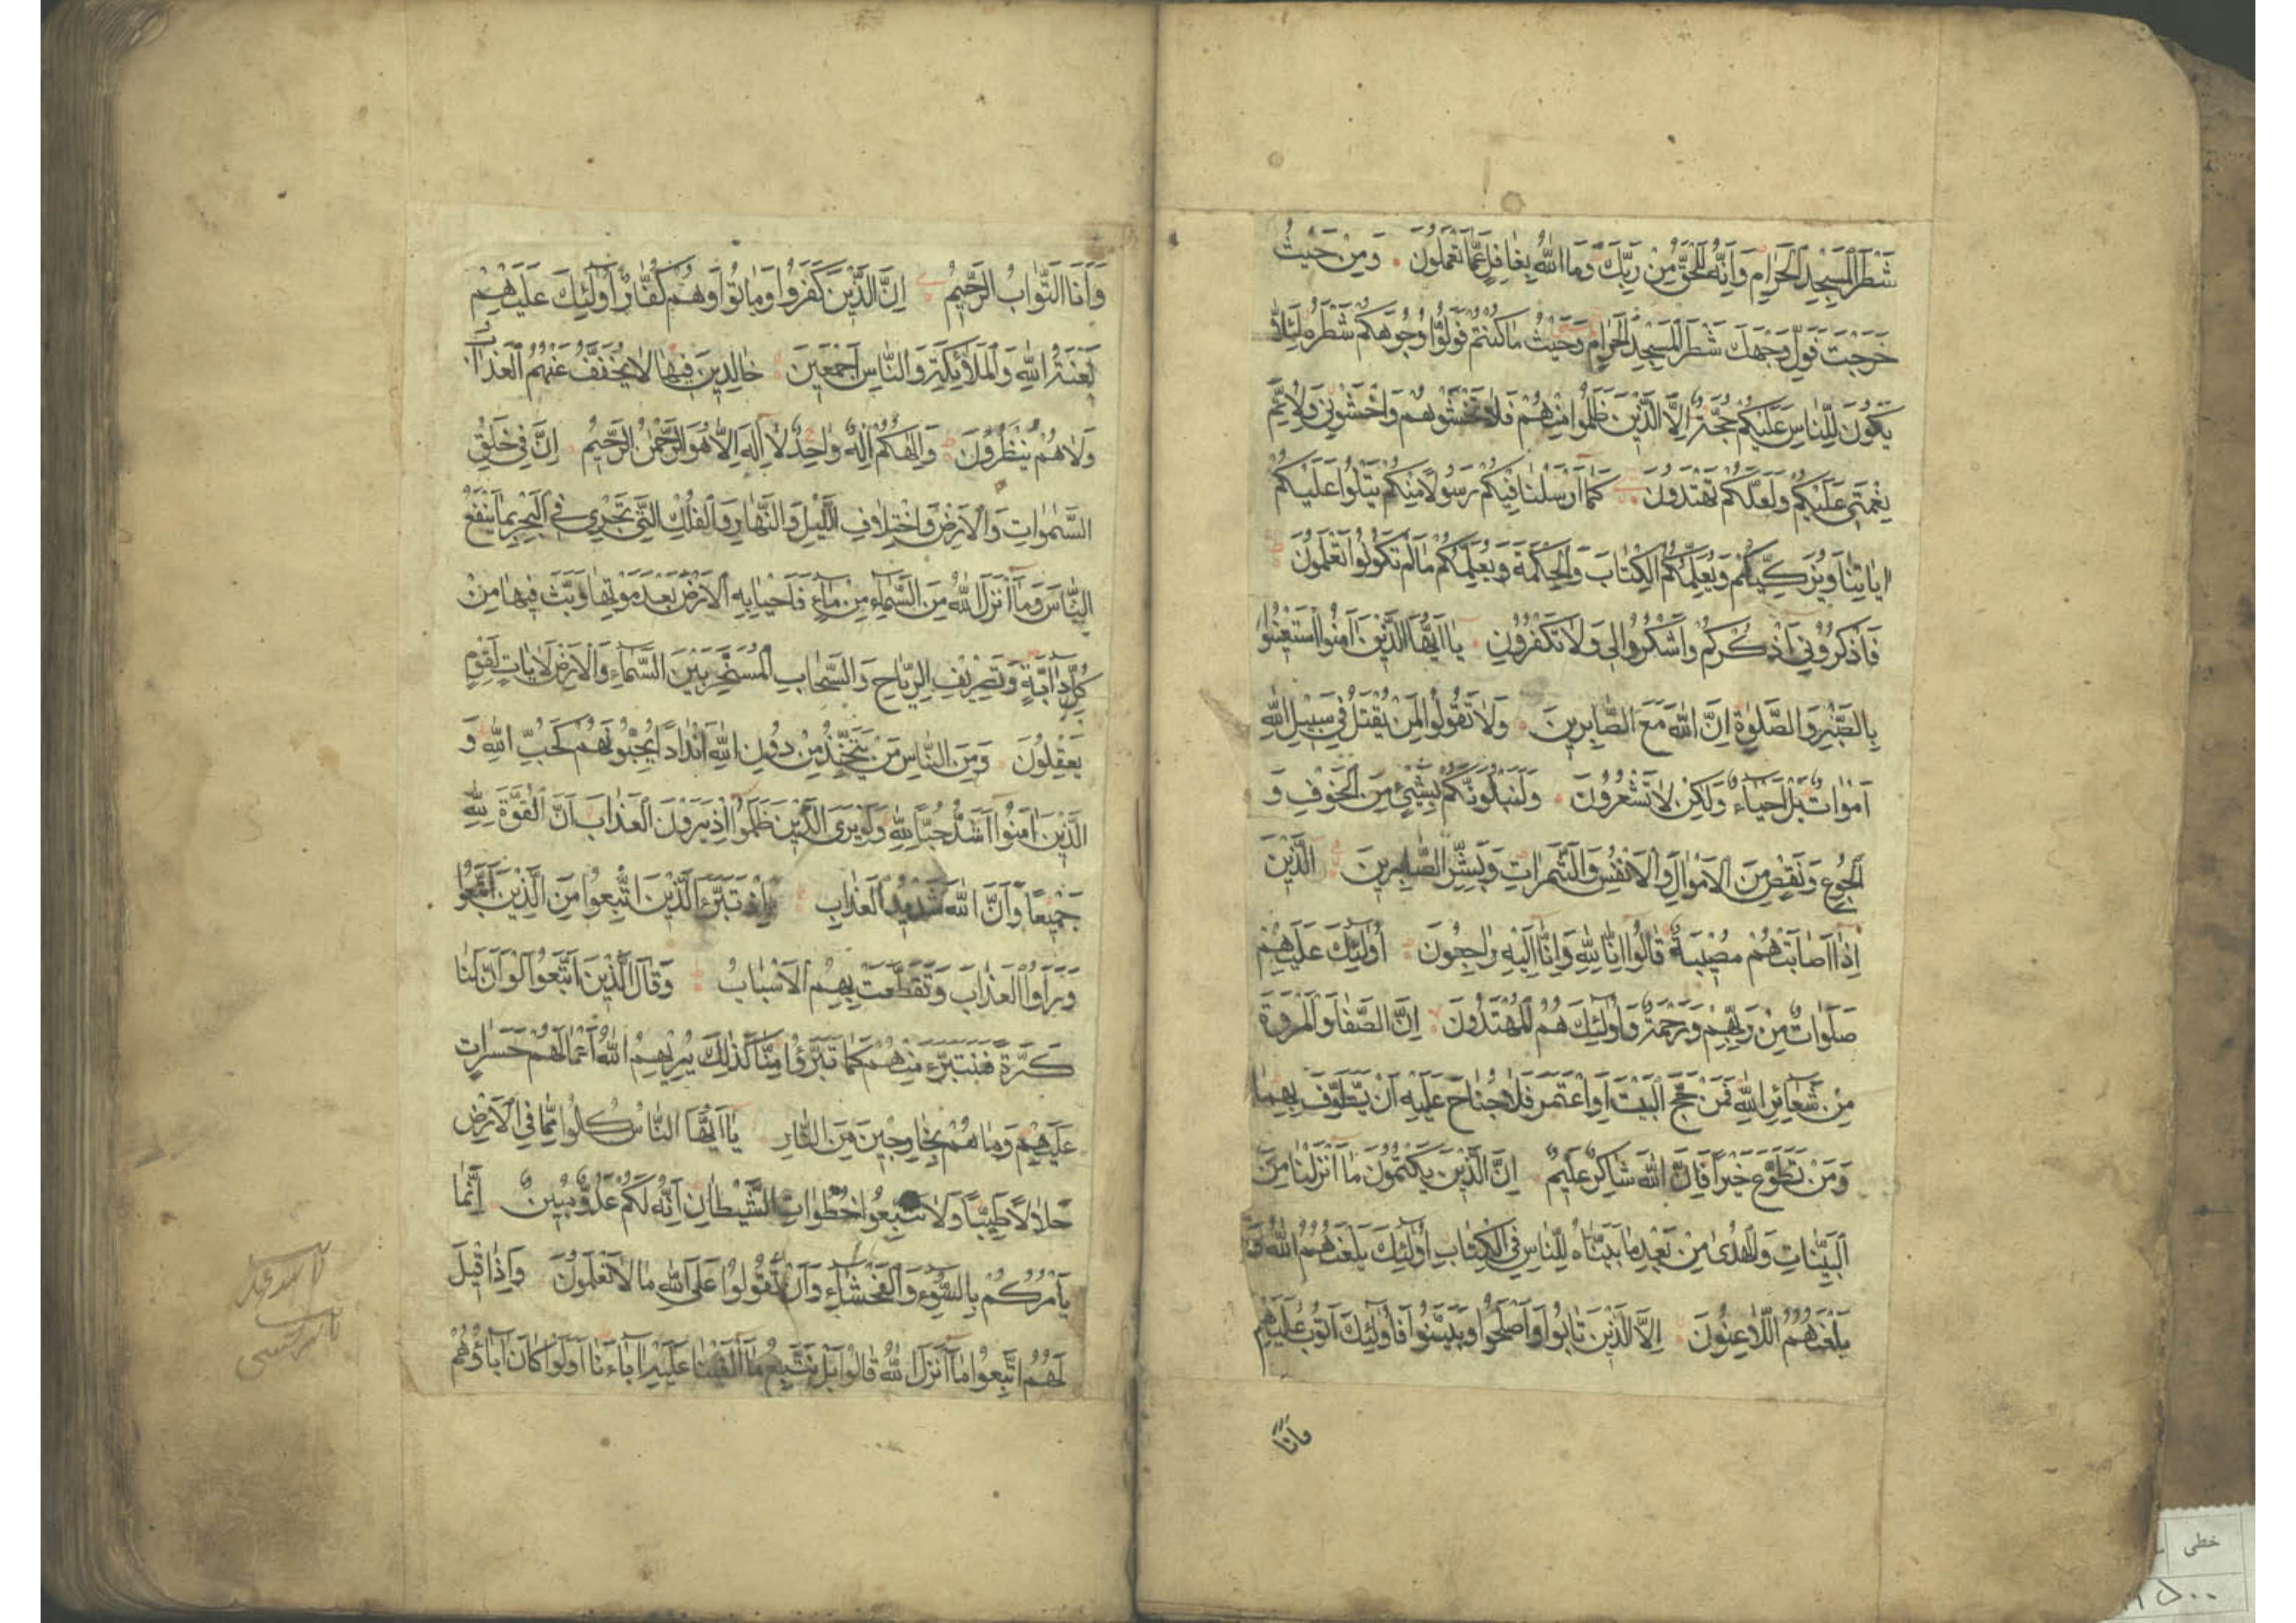 شَطْرَ الْمَسْجِدِ الْحَرَامِ وَاِنَّهُ لَلْحَقُّ مِنْ رَبِّكَ وَمَا اللّٰهُ بِغَافِلٍ عَمَّا تَعْمَلُونَ وَمِنْ حَيْثُ
خَرَجْتَ فَوَلِّ وَجْهَكَ شَطْرَ الْمَسْجِدِ الْحَرَامِ وَحَيْثُ مَا كُنْتُمْ فَوَلُّوا وُجُوهَكُمْ شَطْرَهُ لِئَلَّا
يَكُونَ لِلنَّاسِ عَلَيْكُمْ حُجَّةٌ اِلَّا الَّذِينَ ظَلَمُوا مِنْهُمْ فَلَا تَخْشَوْهُمْ وَاخْشَوْنِي وَلِاُتِمَّ
نِعْمَتِي عَلَيْكُمْ وَلَعَلَّكُمْ تَهْتَدُونَ كَمَا اَرْسَلْنَا فِيكُمْ رَسُولًا مِنْكُمْ يَتْلُوا عَلَيْكُمْ
اٰيَاتِنَا وَيُزَكِّيكُمْ وَيُعَلِّمُكُمُ الْكِتَابَ وَالْحِكْمَةَ وَيُعَلِّمُكُمْ مَا لَمْ تَكُونُوا تَعْلَمُونَ
فَاذْكُرُونِي اَذْكُرْكُمْ وَاشْكُرُوا لِي وَلَا تَكْفُرُونِ يَا اَيُّهَا الَّذِينَ اٰمَنُوا اسْتَعِينُوا
بِالصَّبْرِ وَالصَّلٰوةِ اِنَّ اللّٰهَ مَعَ الصَّابِرِينَ وَلَا تَقُولُوا لِمَنْ يُقْتَلُ فِي سَبِيلِ اللّٰهِ
اَمْوَاتٌ بَلْ اَحْيَاءٌ وَلٰكِنْ لَا تَشْعُرُونَ وَلَنَبْلُوَنَّكُمْ بِشَيْئٍ مِنَ الْخَوْفِ وَ
الْجُوعِ وَنَقْصٍ مِنَ الْاَمْوَالِ وَالْاَنْفُسِ وَالثَّمَرَاتِ وَبَشِّرِ الصَّابِرِينَ الَّذِينَ
اِذَا اَصَابَتْهُمْ مُصِيبَةٌ قَالُوا اِنَّا لِلّٰهِ وَاِنَّا اِلَيْهِ رَاجِعُونَ اُولٰئِكَ عَلَيْهِمْ
صَلَوَاتٌ مِنْ رَبِّهِمْ وَرَحْمَةٌ وَاُولٰئِكَ هُمُ الْمُهْتَدُونَ اِنَّ الصَّفَا وَالْمَرْوَةَ
مِنْ شَعَائِرِ اللّٰهِ فَمَنْ حَجَّ الْبَيْتَ اَوِ اعْتَمَرَ فَلَا جُنَاحَ عَلَيْهِ اَنْ يَطَّوَّفَ بِهِمَا
وَمَنْ تَطَوَّعَ خَيْرًا فَاِنَّ اللّٰهَ شَاكِرٌ عَلِيمٌ اِنَّ الَّذِينَ يَكْتُمُونَ مَا اَنْزَلْنَا مِنَ
الْبَيِّنَاتِ وَالْهُدٰى مِنْ بَعْدِ مَا بَيَّنَّاهُ لِلنَّاسِ فِي الْكِتَابِ اُولٰئِكَ يَلْعَنُهُمُ اللّٰهُ وَ
يَلْعَنُهُمُ اللَّاعِنُونَ اِلَّا الَّذِينَ تَابُوا وَاَصْلَحُوا وَبَيَّنُوا فَاُولٰئِكَ اَتُوبُ عَلَيْهِمْ
وَاَنَا
وَاَنَا التَّوَّابُ الرَّحِيمُ اِنَّ الَّذِينَ كَفَرُوا وَمَاتُوا وَهُمْ كُفَّارٌ اُولٰئِكَ عَلَيْهِمْ
لَعْنَةُ اللّٰهِ وَالْمَلَائِكَةِ وَالنَّاسِ اَجْمَعِينَ خَالِدِينَ فِيهَا لَا يُخَفَّفُ عَنْهُمُ الْعَذَابُ
وَلَا هُمْ يُنْظَرُونَ وَاِلٰهُكُمْ اِلٰهٌ وَاحِدٌ لَا اِلٰهَ اِلَّا هُوَ الرَّحْمٰنُ الرَّحِيمُ اِنَّ فِي خَلْقِ
السَّمٰوَاتِ وَالْاَرْضِ وَاخْتِلَافِ الَّيْلِ وَالنَّهَارِ وَالْفُلْكِ الَّتِي تَجْرِي فِي الْبَحْرِ بِمَا يَنْفَعُ
النَّاسَ وَمَا اَنْزَلَ اللّٰهُ مِنَ السَّمَاءِ مِنْ مَاءٍ فَاَحْيَا بِهِ الْاَرْضَ بَعْدَ مَوْتِهَا وَبَثَّ فِيهَا مِنْ
كُلِّ دَابَّةٍ وَتَصْرِيفِ الرِّيَاحِ وَالسَّحَابِ الْمُسَخَّرِ بَيْنَ السَّمَاءِ وَالْاَرْضِ لَاٰيَاتٍ لِقَوْمٍ
يَعْقِلُونَ وَمِنَ النَّاسِ مَنْ يَتَّخِذُ مِنْ دُونِ اللّٰهِ اَنْدَادًا يُحِبُّونَهُمْ كَحُبِّ اللّٰهِ وَ
الَّذِينَ اٰمَنُوا اَشَدُّ حُبًّا لِلّٰهِ وَلَوْ يَرَى الَّذِينَ ظَلَمُوا اِذْ يَرَوْنَ الْعَذَابَ اَنَّ الْقُوَّةَ لِلّٰهِ
جَمِيعًا وَاَنَّ اللّٰهَ شَدِيدُ الْعَذَابِ اِذْ تَبَرَّءَ الَّذِينَ اتُّبِعُوا مِنَ الَّذِينَ اتَّبَعُوا
وَرَاَوُا الْعَذَابَ وَتَقَطَّعَتْ بِهِمُ الْاَسْبَابُ وَقَالَ الَّذِينَ اتَّبَعُوا لَوْ اَنَّ لَنَا
كَرَّةً فَنَتَبَرَّءَ مِنْهُمْ كَمَا تَبَرَّؤُا مِنَّا كَذٰلِكَ يُرِيهِمُ اللّٰهُ اَعْمَالَهُمْ حَسَرَاتٍ
عَلَيْهِمْ وَمَا هُمْ بِخَارِجِينَ مِنَ النَّارِ يَا اَيُّهَا النَّاسُ كُلُوا مِمَّا فِي الْاَرْضِ
حَلَالًا طَيِّبًا وَلَا تَتَّبِعُوا خُطُوَاتِ الشَّيْطَانِ اِنَّهُ لَكُمْ عَدُوٌّ مُبِينٌ اِنَّمَا
يَاْمُرُكُمْ بِالسُّوءِ وَالْفَحْشَاءِ وَاَنْ تَقُولُوا عَلَى اللّٰهِ مَا لَا تَعْلَمُونَ وَاِذَا قِيلَ
لَهُمُ اتَّبِعُوا مَا اَنْزَلَ اللّٰهُ قَالُوا بَلْ نَتَّبِعُ مَا اَلْفَيْنَا عَلَيْهِ اٰبَاءَنَا اَوَلَوْ كَانَ اٰبَاؤُهُمْ
خطی